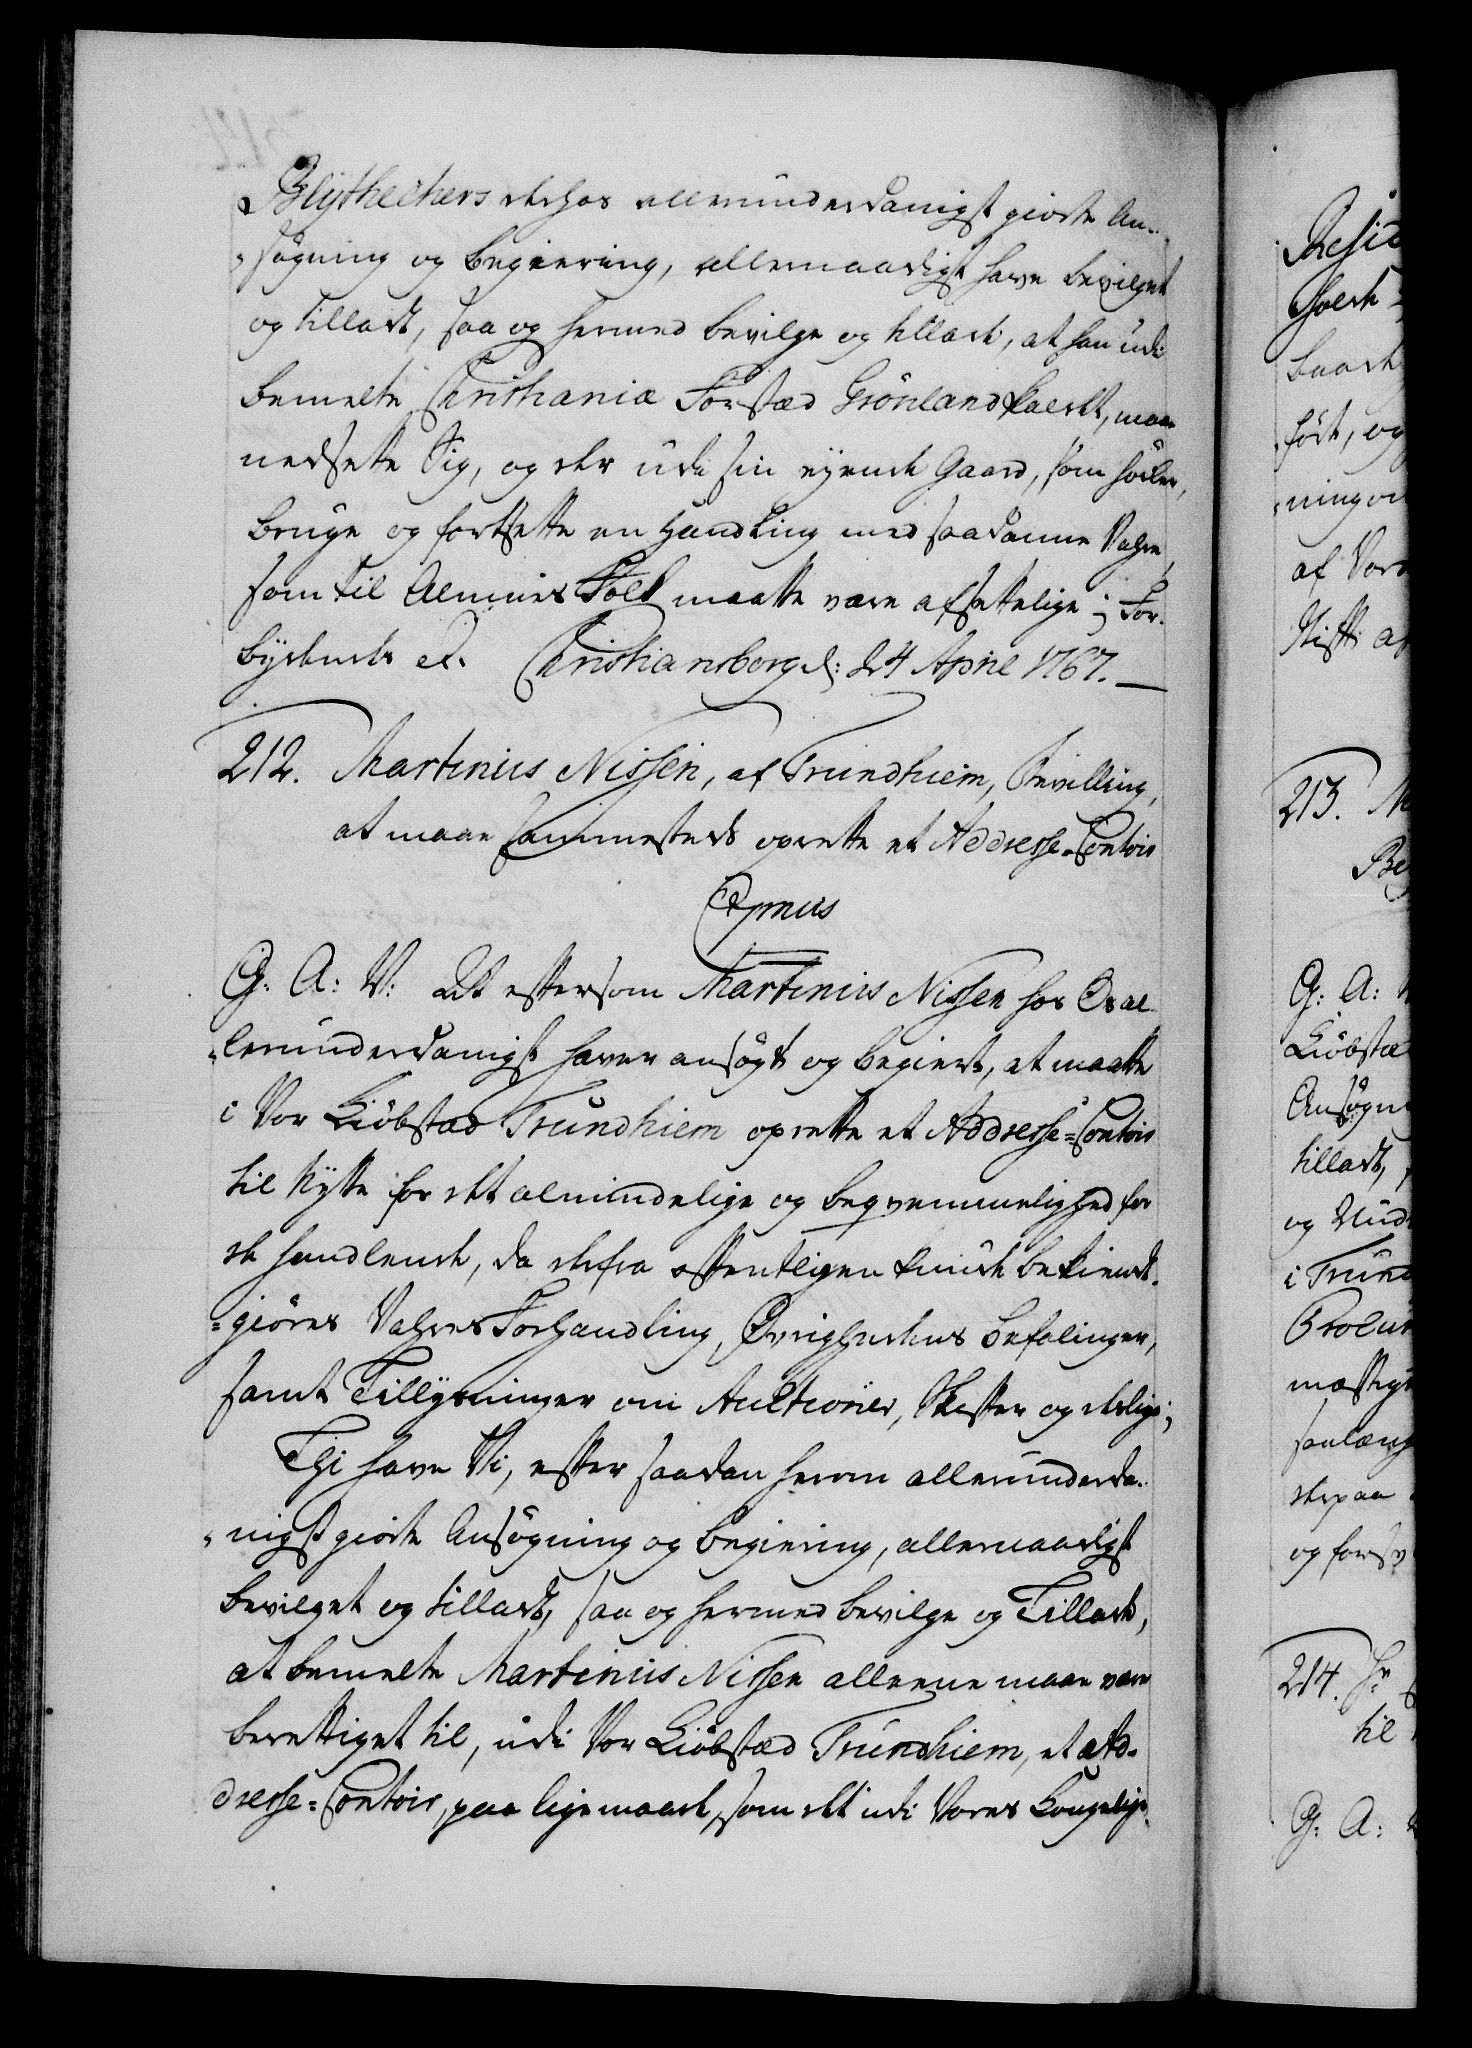 Blythechers derhos allerunderdanigst giorte An-
søgning og begiering, allernaadigst have bevilget
og tilladt, saa og hermed bevilge og tillade, at han udi
bemelte Christianiæ Forstæd Grönland kaldt, maa
nedsette Sig, og der udi sin eyende Gaard, som
bruge og fortsette en Handling med saadanne Vahre,
som til Almues Folk maatte være afsettelige; For-
bydende et. Christiansborg d: 24 April 1767. —
212. Martinus Nissen, af Trundhiem, Bevilling,
at maae sammesteds oprette et Addresse-Contoir
G: A: V: At eftersom Martinus Nissen hos Os al-
lerunderdanigst haver ansøgt og begiert, at maatte
i Vor Kiöbstæd Trundhiem oprette et Addresse=Contoir
til Nytte for det almindelige og beqvemmelighed for
de handlende, da derfra offentligen kunde bekiendt-
=giöres Vahres Forhandling, Øvrighedens befalinger,
samt Tillysninger om Auctioner, Skifter og deslige;
Thi have Vi, efter saadan herom allerunderda-
nigst giorte Ansøgning og begiering, allernaadigst
bevilget og tilladt, saa og hermed bevilge og Tillade,
at bemelte Martinus Nissen alleene maae være
berettiget til, udi Vor Kiöbstæd Trundhiem, et Ad-
dresse=Contoir, paa lige maade, som det udi Vores Kongelige
213. M
Be
G: A:
Kiöbstæ
Ansøgn
tilladt,
og
i Trund
og
214. Hr
til
G: A: